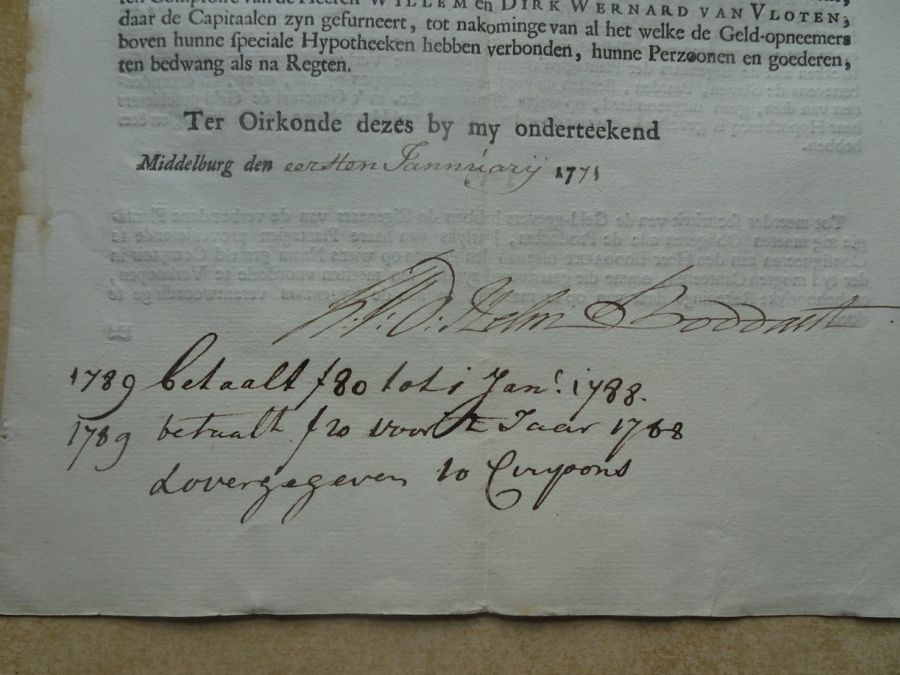 ten Comptoire van de Heeren WILLEM en DIRK WERNARD VAN VLOTEN,
daar de Capitaalen zyn gefurneert, tot nakominge van al het welke de Geld-opneemers
boven hunne speciale Hypotheeken hebben verbonden, hunne Perzoonen en goederen,
ten bedwang als na Regten.
Ter Oirkonde dezes by my onderteekend
Middelburg den eersten Jannuarij 1771
Helm Boddaert
1789 betaalt f80 tot 1 Jan: 1788.
1789 betaalt f20 voor 't Jaar 1788
& overgegeven 10 Coupons